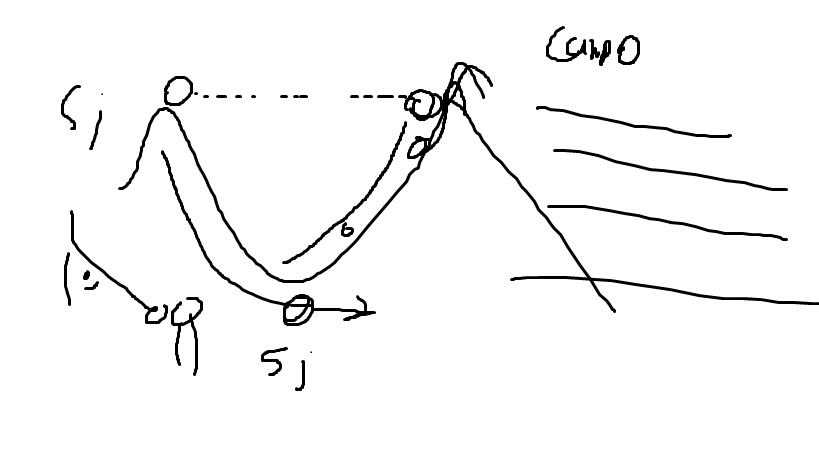 Campo
5 j
5 j